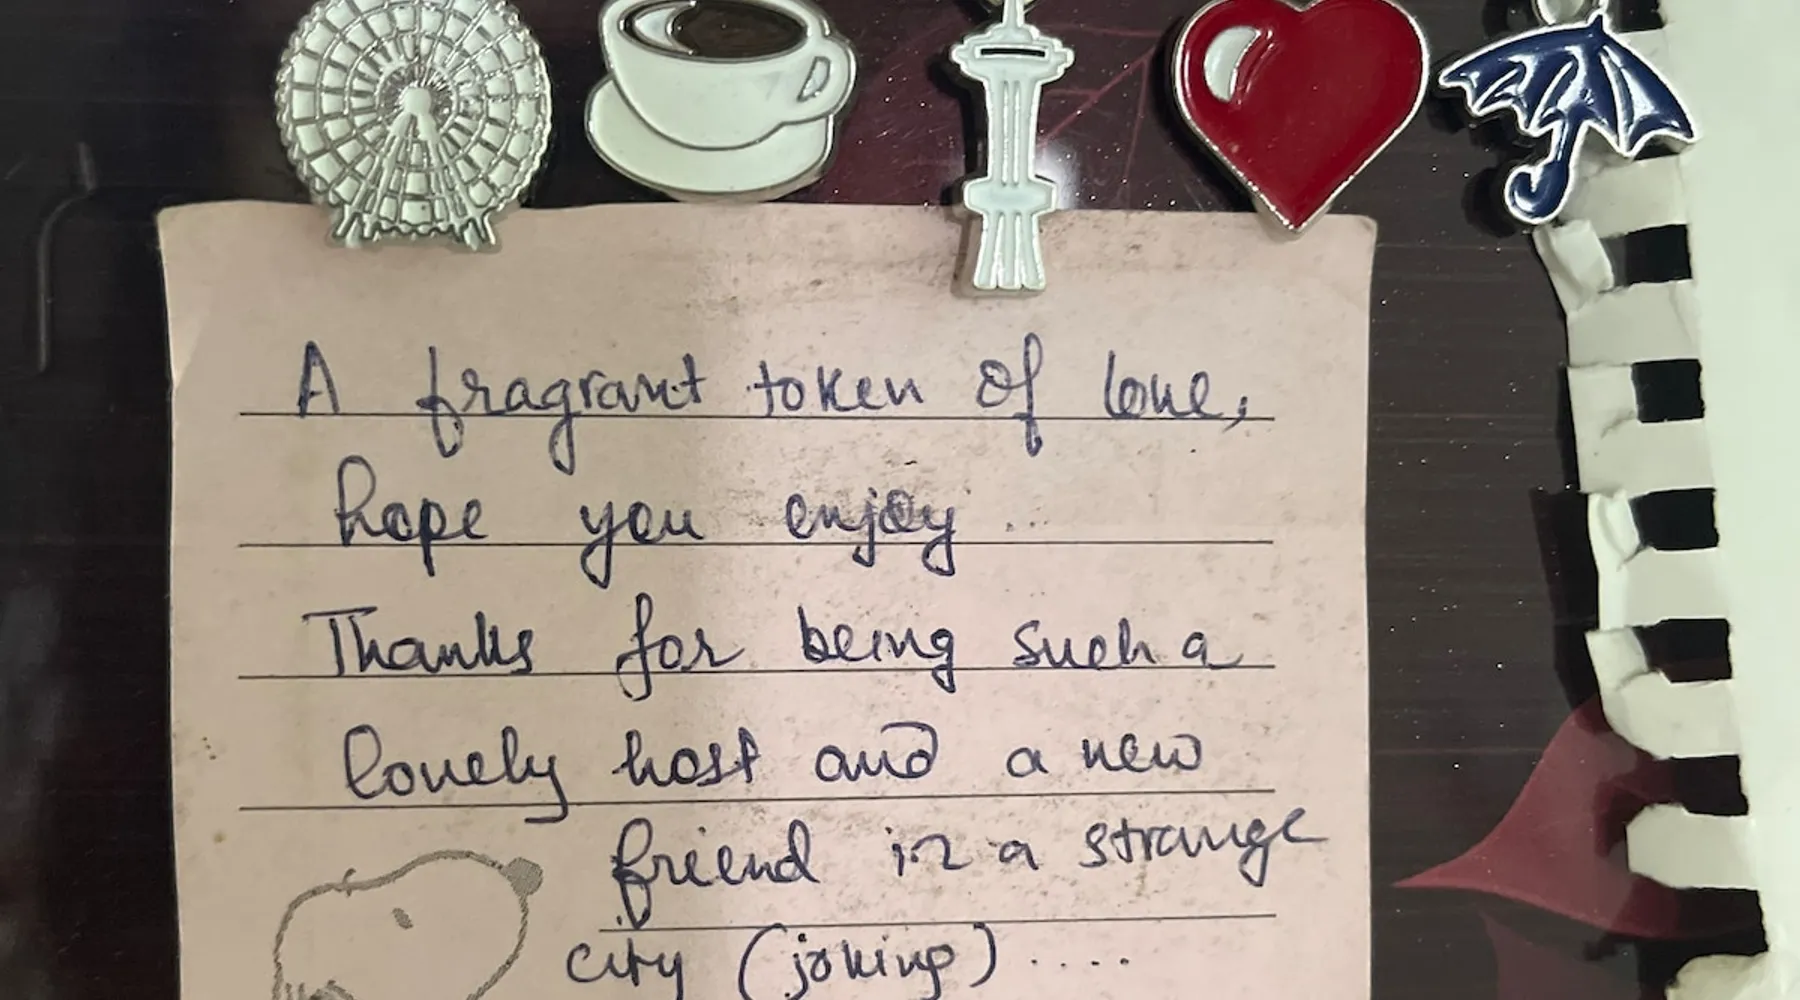 A fragrant token of love,
hope you enjoy ...
Thanks for being such a
lovely host and a new
friend in a strange
city (joking) ....